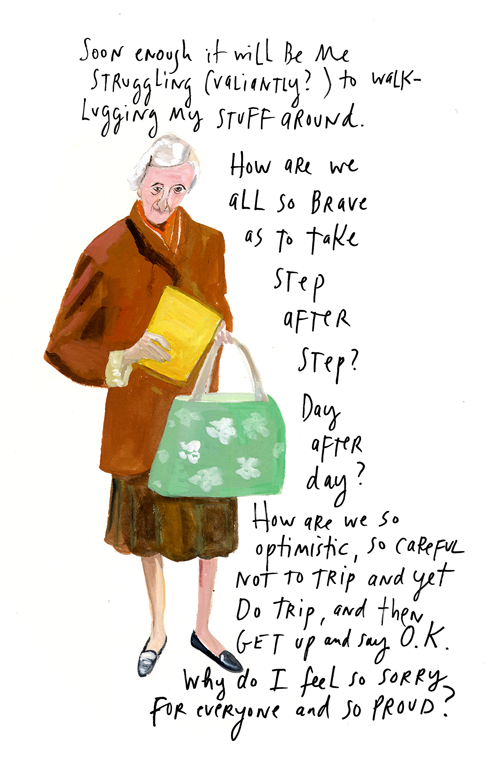 Soon enough it will Be Me
STRuggling (valiantly?) to walk-
Lugging My STUFF aROUND.
How are we
aLL so BRave
as to take
STep
aFTeR
STep?
Day
aFTeR
day?
How are we so
optimistic, so CaReFUL
NOT TO TRip and yet
Do TRip, and then
GET up and say O.K.
Why do I feel so soRRy
FOR everyone and so PROUD?